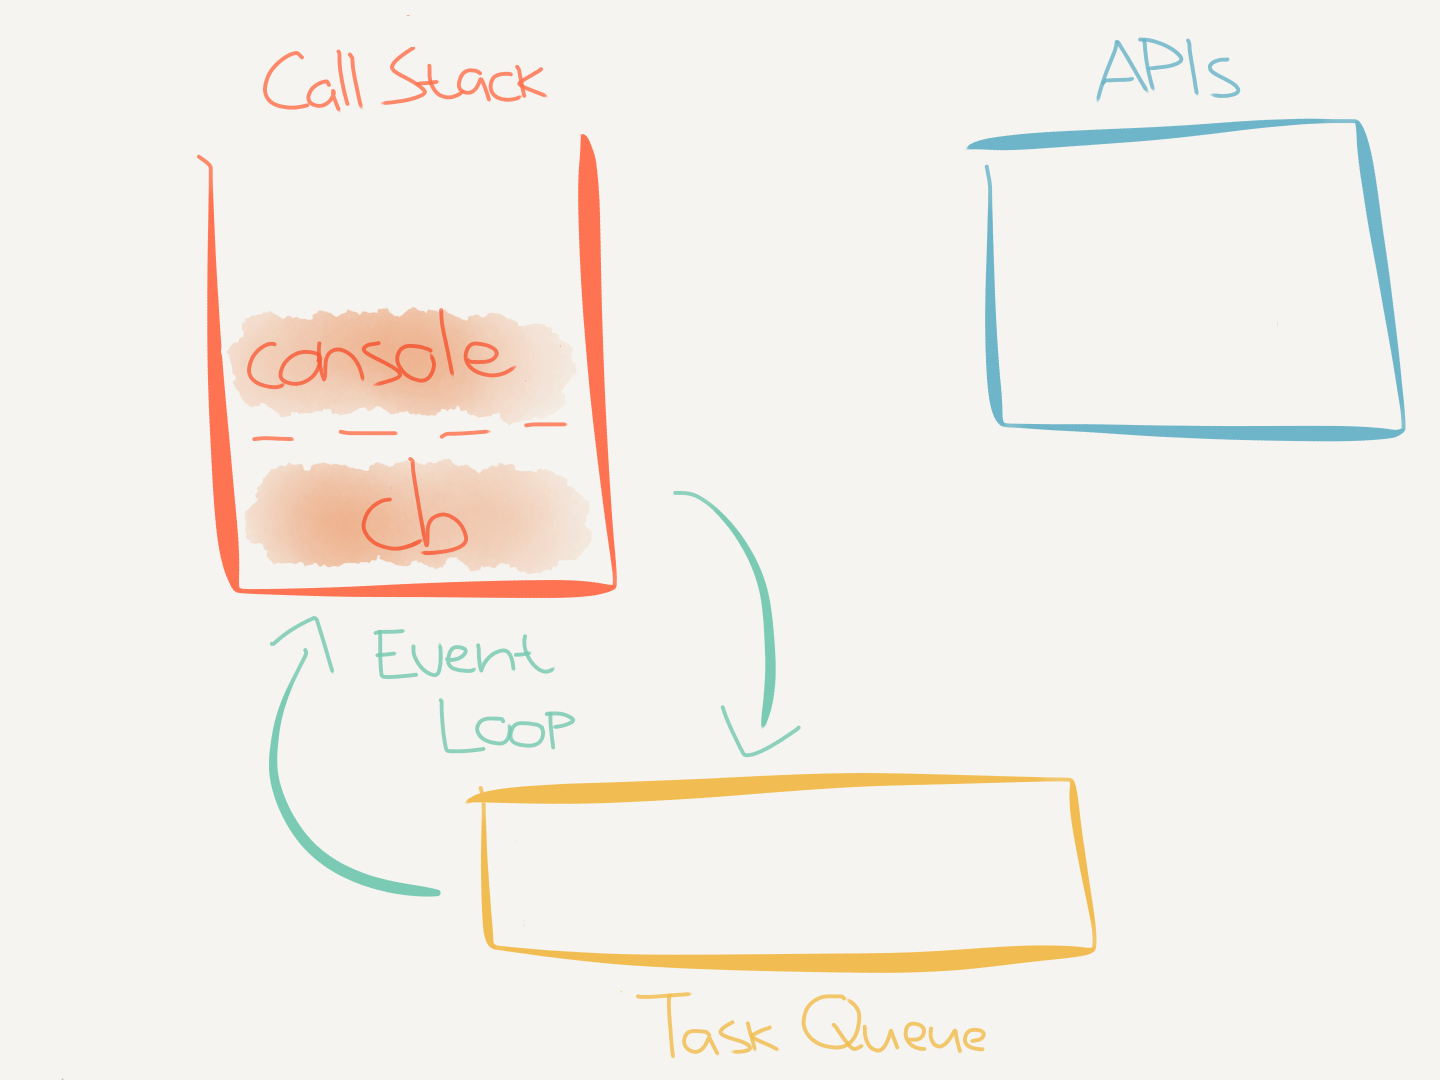 Call Stack
APIs
console
cb
Event
Loop
Task Queue